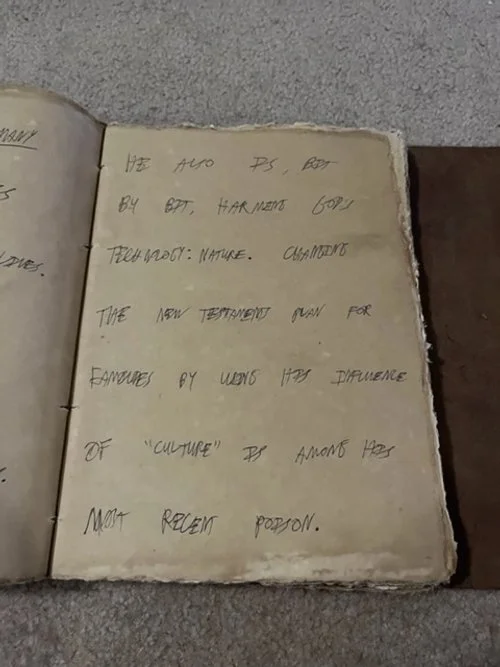 MANY
HE ALSO IS, BIT
BY BIT, HARMING GOD'S
LIVES.
TECHNOLOGY: NATURE. CHANGING
THE NEW TESTAMENT PLAN FOR
FAMILIES BY USING HIS INFLUENCE
OF "CULTURE" IS AMONG HIS
MOST RECENT POISON.